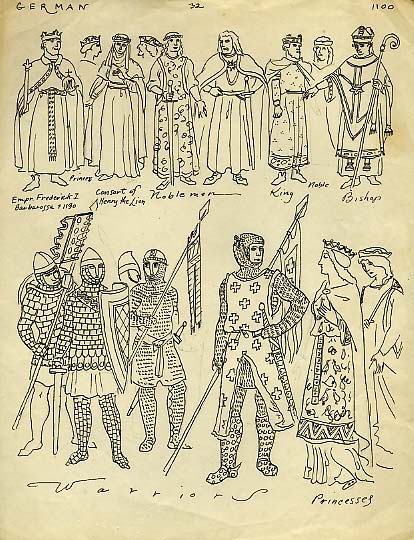 GERMAN 32 1100
Princes
Empr. Frederick I
Barbarossa † 1190
Consort of
Henry the Lion
Noblemen
King
Noble
Bishop
Warriors
Princesses